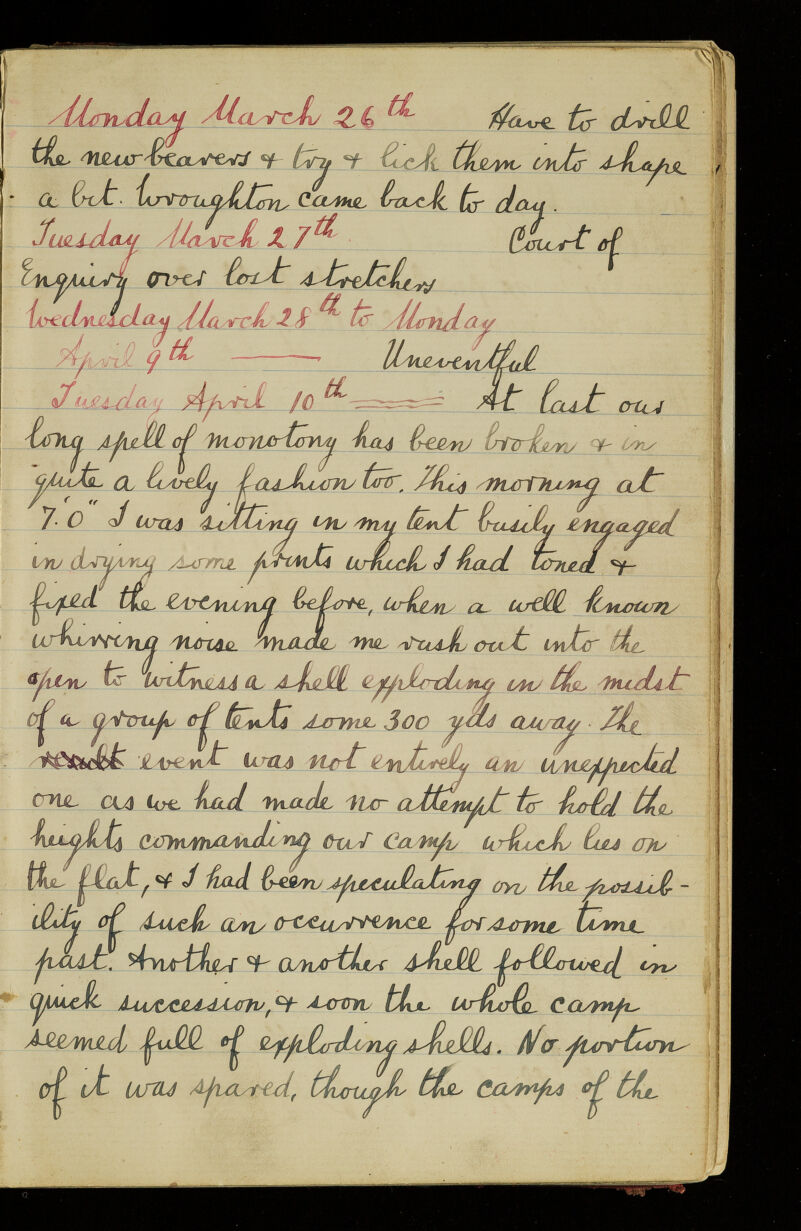 Monday March 26th Have to drill
the new bearers & try & lick them into shape
a bit. Wroughton came back to day.
Tuesday March 27th Court of
Enquiry over lost stretchers
Wednesday March 28th to Monday
April 9th — Uneventful
Tuesday April 10th — At last our
long spell of monotony has been broken & in
quite a lively fashion too. This morning at
7.'0" I was sitting in my tent busily engaged
in drying some prints which I had toned &
fixed the evening before, when a well known
whirring noise made me rush out into the
open to witness a shell exploding in the midst
of a group of tents some 300 yds away. The
result event was not entirely an unexpected
one as we had made no attempt to hold the
heights commanding our camp which lies on
the flat, & I had been speculating on the possib-
ility of such an occurrence for some time
past. Another & another shell followed in
quick succession, & soon the whole camp
seemed full of exploding shells. No portion
of it was spared, though the camps of the